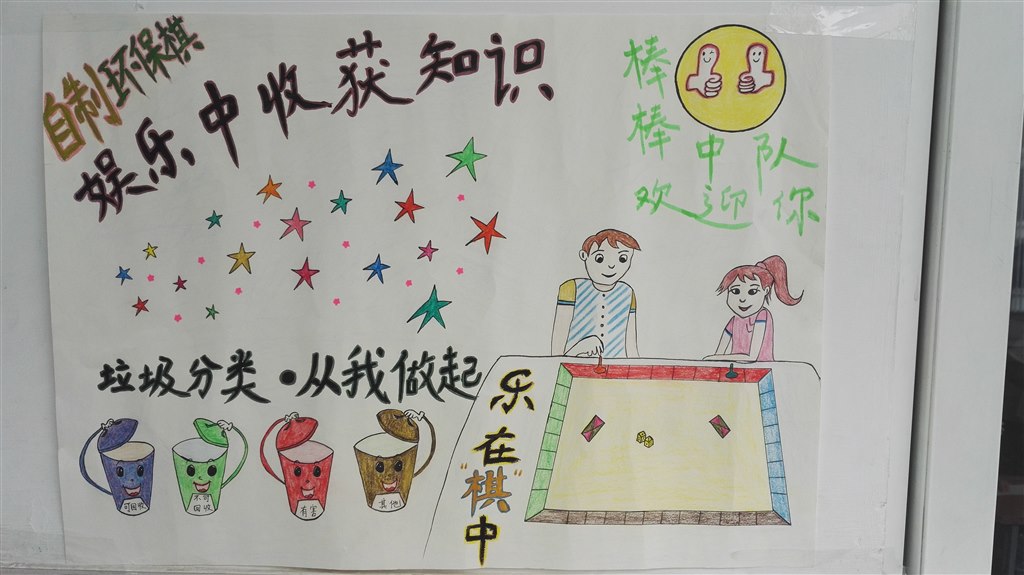 自制环保棋
娱乐中收获知识
棒棒中队
欢迎你
垃圾分类·从我做起
可回收
不可
回收
有害
其他
乐在"棋"中